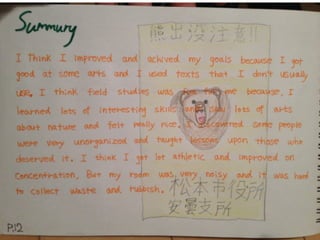 Summury
熊出没注意!!
I think I improved and achived my goals because I got
good at some arts and I used texts that I don't usually
use. I think field studies was for me because I
learned lots of interesting skills and saw lots of arts
about nature and felt really nice. I discovered some people
were very unorganized and taught lessons upon those who
deserved it. I think I got lot athletic and improved on
concentration. But my room was very noisy and it was hard
to collect waste and rubbish.
松本市役所
安曇支所
P.12